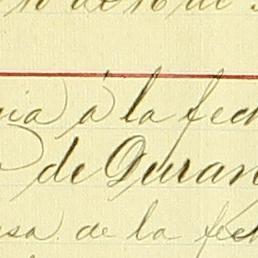 10 de 16 de
cia á la fech
de Duran
sa de la fech